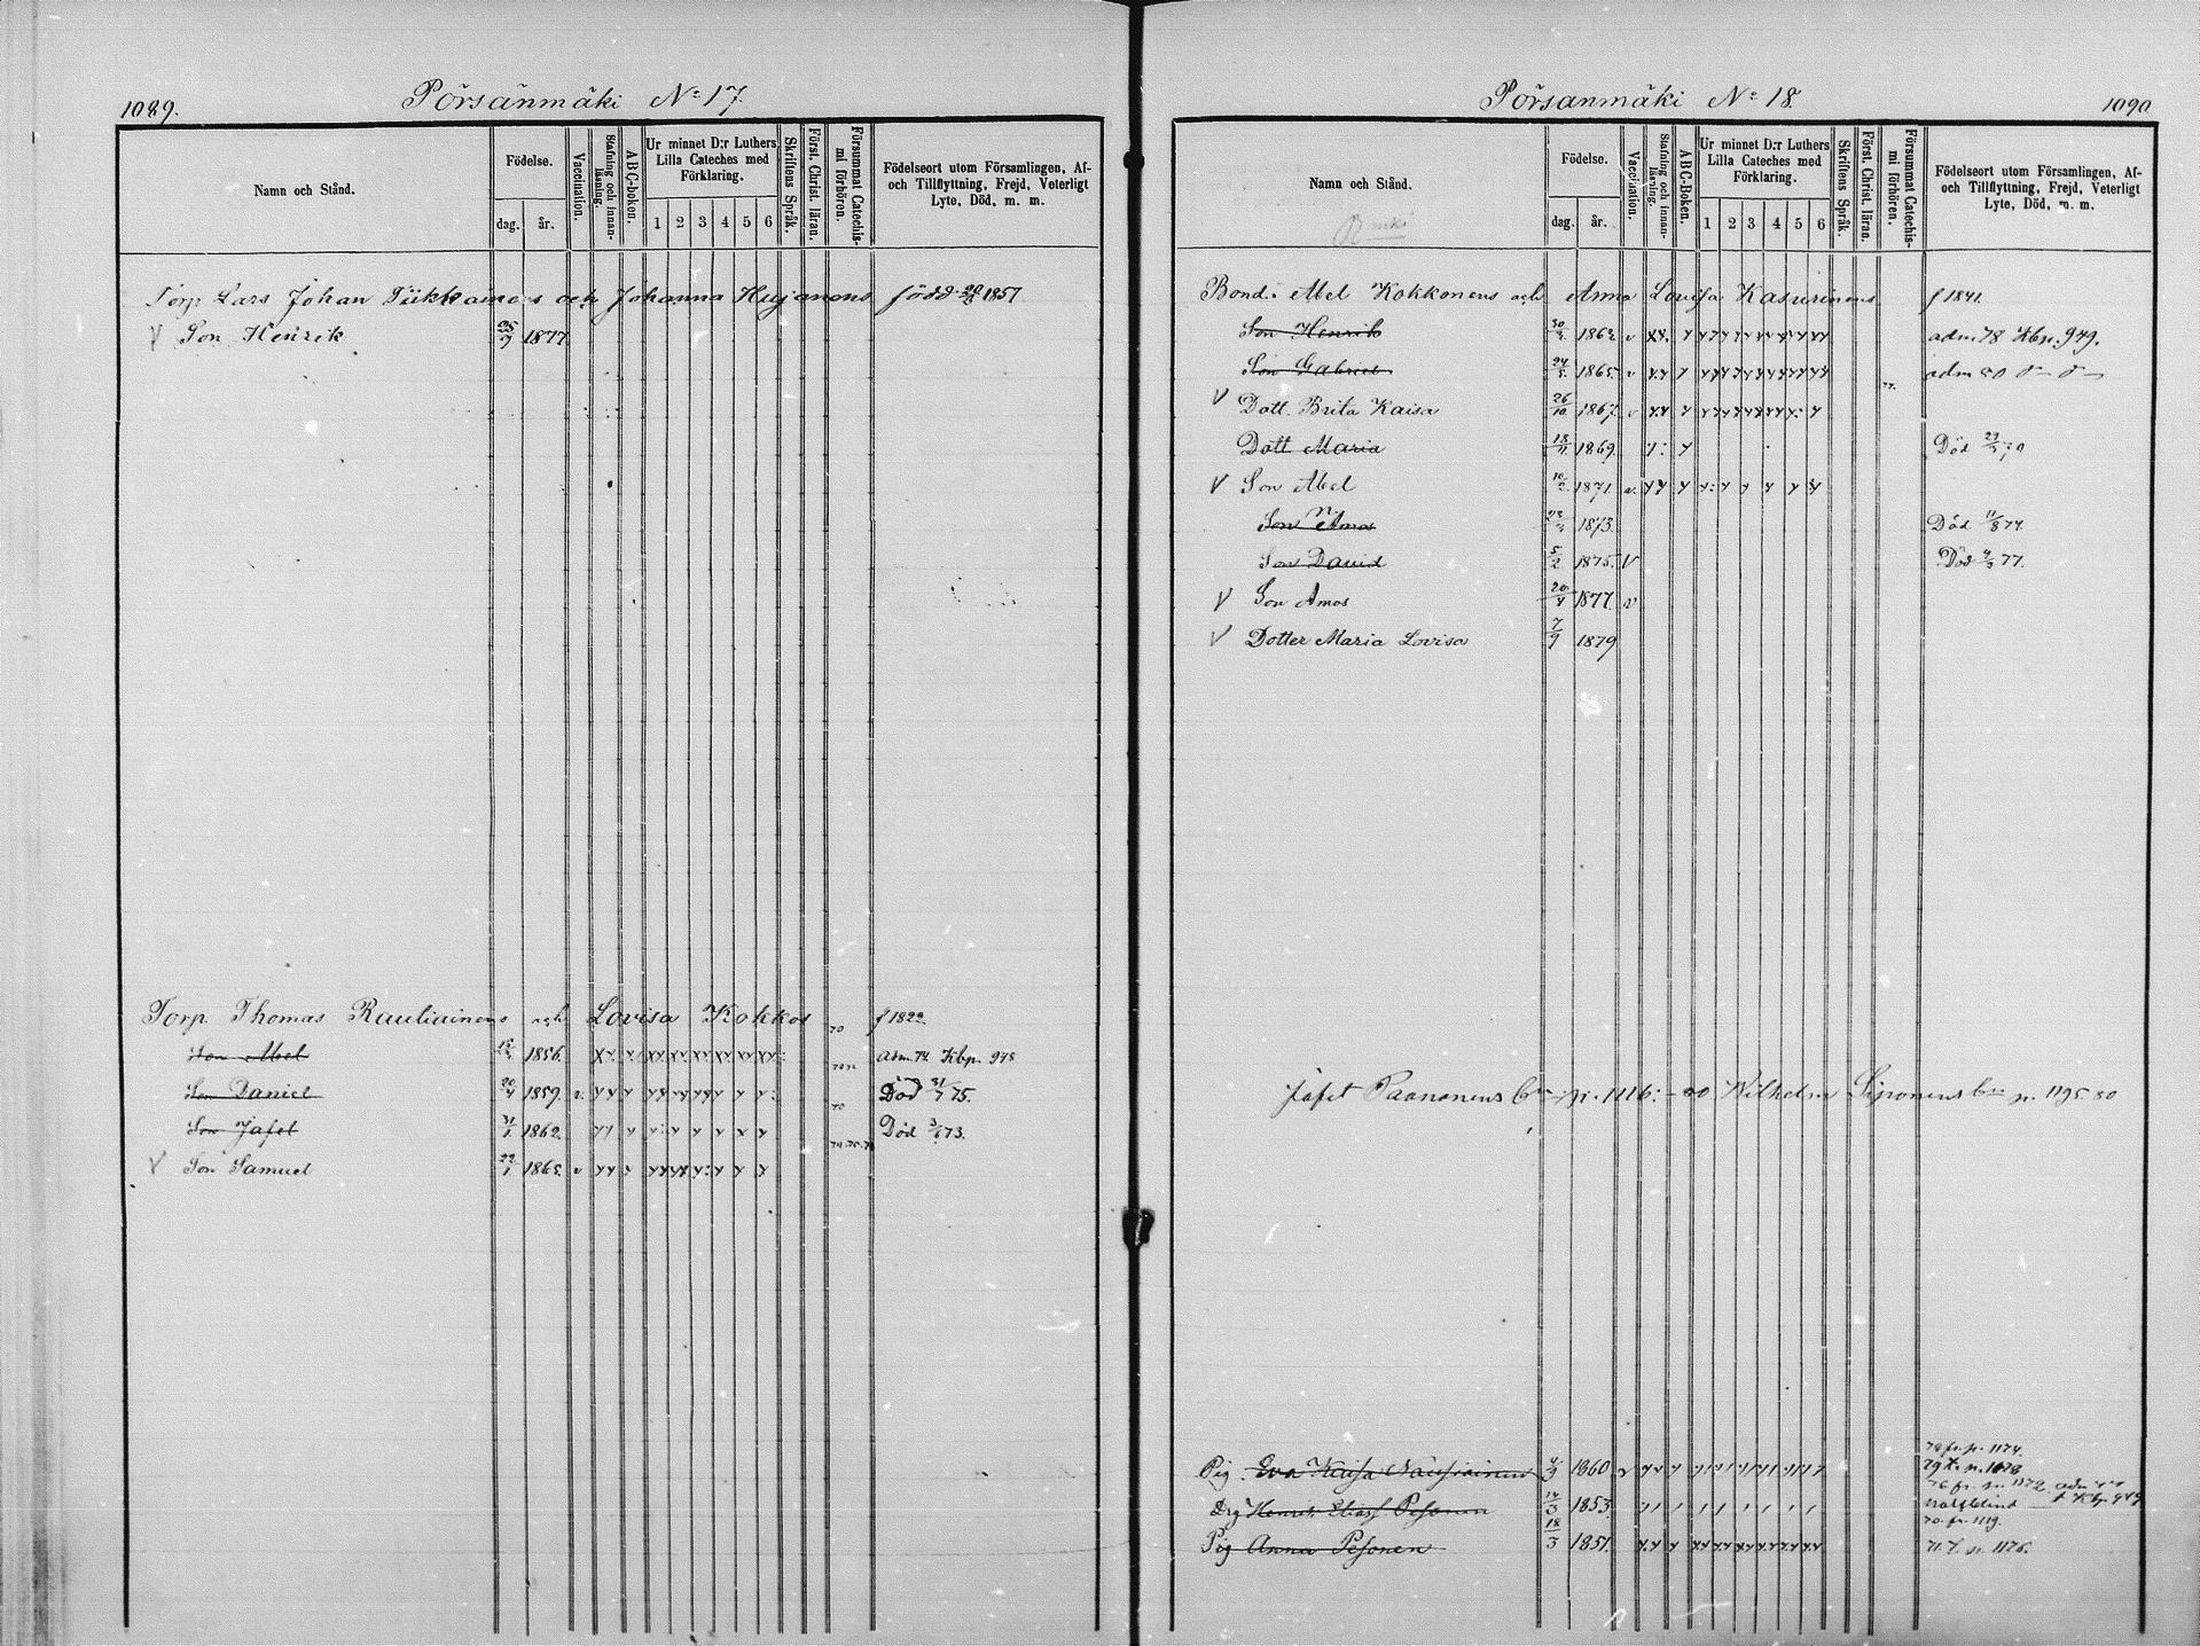 1089.
Pörsänmäki No 17.
Namn och Stånd.
Födelse.
dag.
år.
Vaccination.
Stafning och innan-läsning.
ABC-boken.
Ur minnet D:r Luthers
Lilla Cateches med
Förklaring.
1 2 3 4 5 6
Skriftens Språk.
Först. Christ. läran.
Försummat Catechis-
mi förhören.
Födelseort utom Församlingen, Af-
och Tillflyttning, Frejd, Veterligt
Lyte, Död, m. m.
Torp. Lars Johan Tiikkainens och Johanna Hujanens född 1857
V Son Henrik 25/9 1877
Torp. Thomas Rautiainens och Lovisa Kokkos 70 f 1822.
Son Abel 1856. adm. 74. Kbp. 948
Son Daniel 20/4 1859. v. 70 Död 31/7 75.
Son Jafet 31/1 1862. Död 3/6 73.
V Son Samuel 22/1 1865. v
Pörsänmäki No 18.
1090
Namn och Stånd.
Födelse.
dag.
år.
Vaccination.
Stafning och innan-läsning.
ABC-Boken.
Ur minnet D:r Luthers
Lilla Cateches med
Förklaring.
1 2 3 4 5 6
Skriftens Språk.
Först. Christ. läran.
Försummat Catechis-
mi förhören.
Födelseort utom Församlingen, Af-
och Tillflyttning, Frejd, Veterligt
Lyte, Död, m. m.
Bond. Abel Kokkonens och Anna Lovisa Kasurinens f 1841.
Son Henrik 1862 v adm. 78 Kbp. 949.
Son Gabriel 24/5 1865. v adm 80
V Dott. Brita Kaisa 26/10 1867. v
Dott Maria 18/11 1869. Död
V Son Abel 10/2 1871. v.
Son Amos 1873. Död 11/8 74.
Son David 5/2 1875. V Död 77.
V Son Amos 20/4 1877. v
V Dotter Maria Lovisa 7/9 1879
Jafet Paananens p. 1126: - 80 Wilhelm Siponens p. 1195. 80
78 fr. p. 1174.
Pig. Eva Kaisa 4/9 1860 v 79 t. p. 1078
76 fr. p. 1172. adm
Drg Henrik Elias Pesonen 1853. halfblind
70. fr. 1119.
Pig Anna Pesonen 18/3 1851. 71. t. p. 1176.